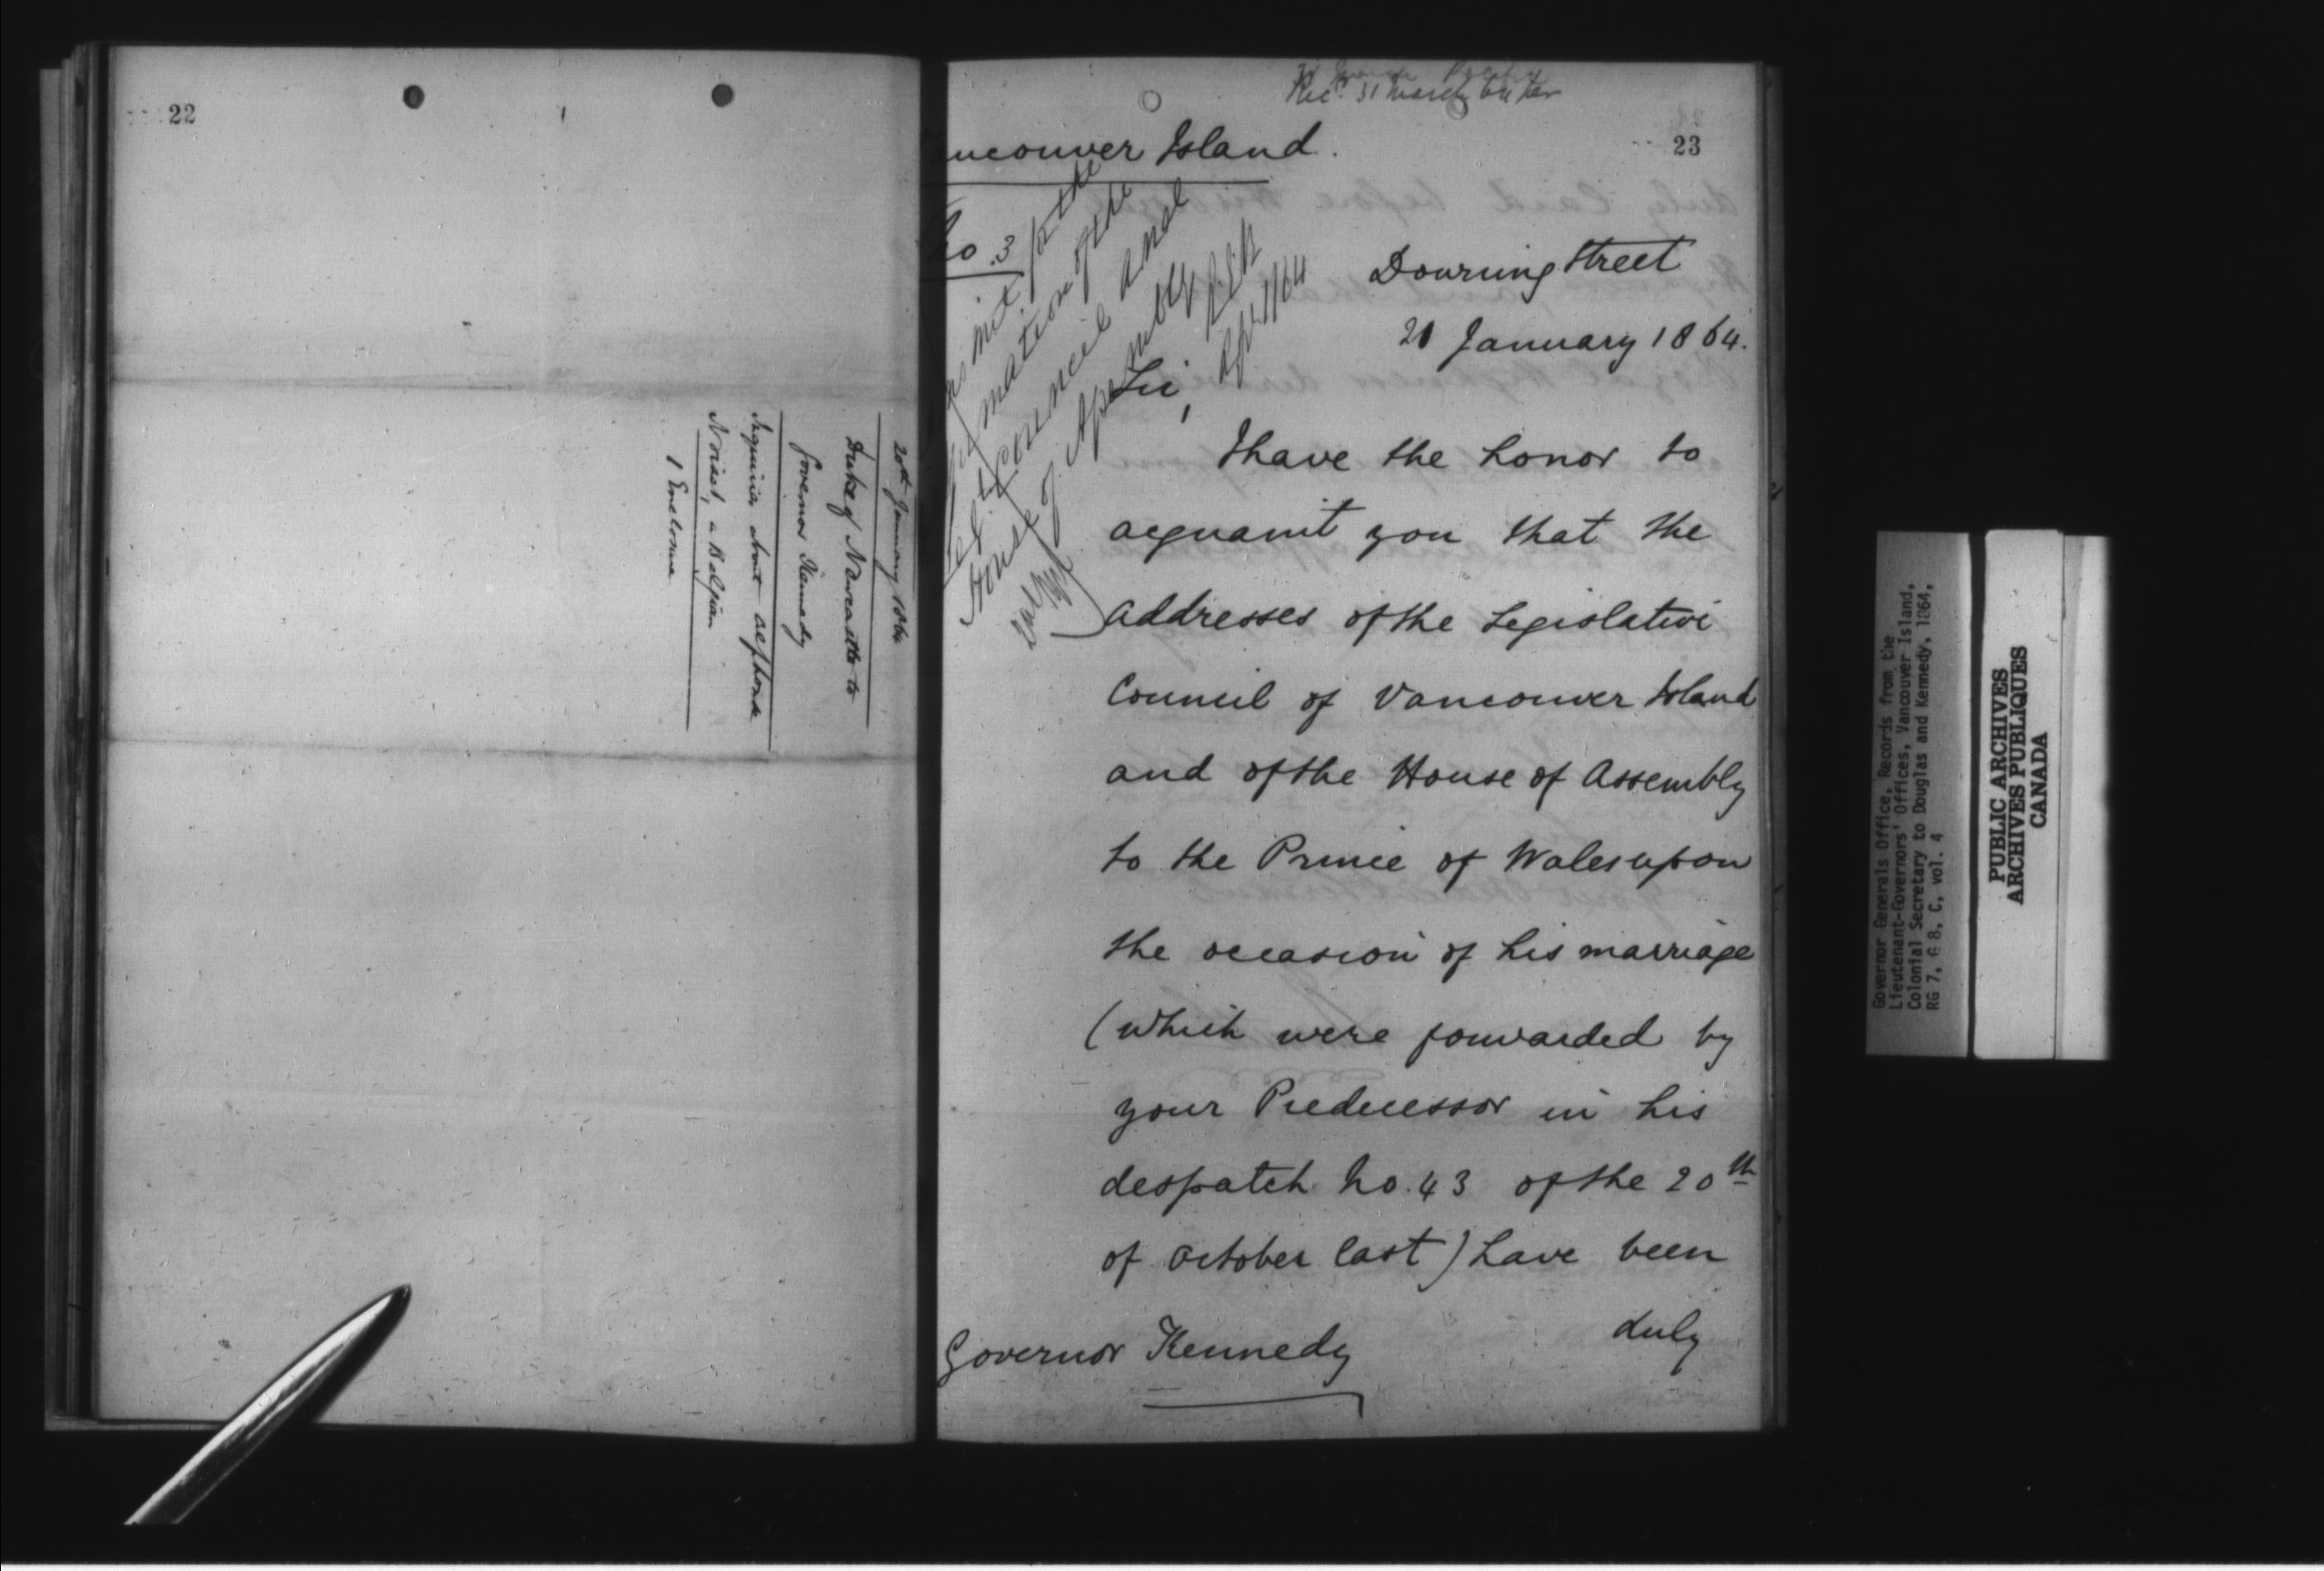 22
20th January 1864
Duke of Newcastle to
Governor Kennedy
Inquiries about Alphonse
Noiset, a Belgian
1 Enclosure
Recd. 31 March
23
ancouver Island.
No. 3
for the
mation of the
Council and
House of Assembly
Apl 1/64
Downing Street
21 January 1864.
Sir,
I have the honor to
acquaint you that the
addresses of the Legislative
Council of Vancouver Island
and of the House of Assembly
to the Prince of Wales upon
the occasion of his marriage
(which were forwarded by
your Predecessor in his
despatch No. 43 of the 20th
of October last) have been
duly
Governor Kennedy
Governor Generals Office, Records from the
Lieutenant-Governors' Offices, Vancouver Island,
Colonial Secretary to Douglas and Kennedy, 1864,
RG 7, G 8, C, vol. 4
PUBLIC ARCHIVES
ARCHIVES PUBLIQUES
CANADA